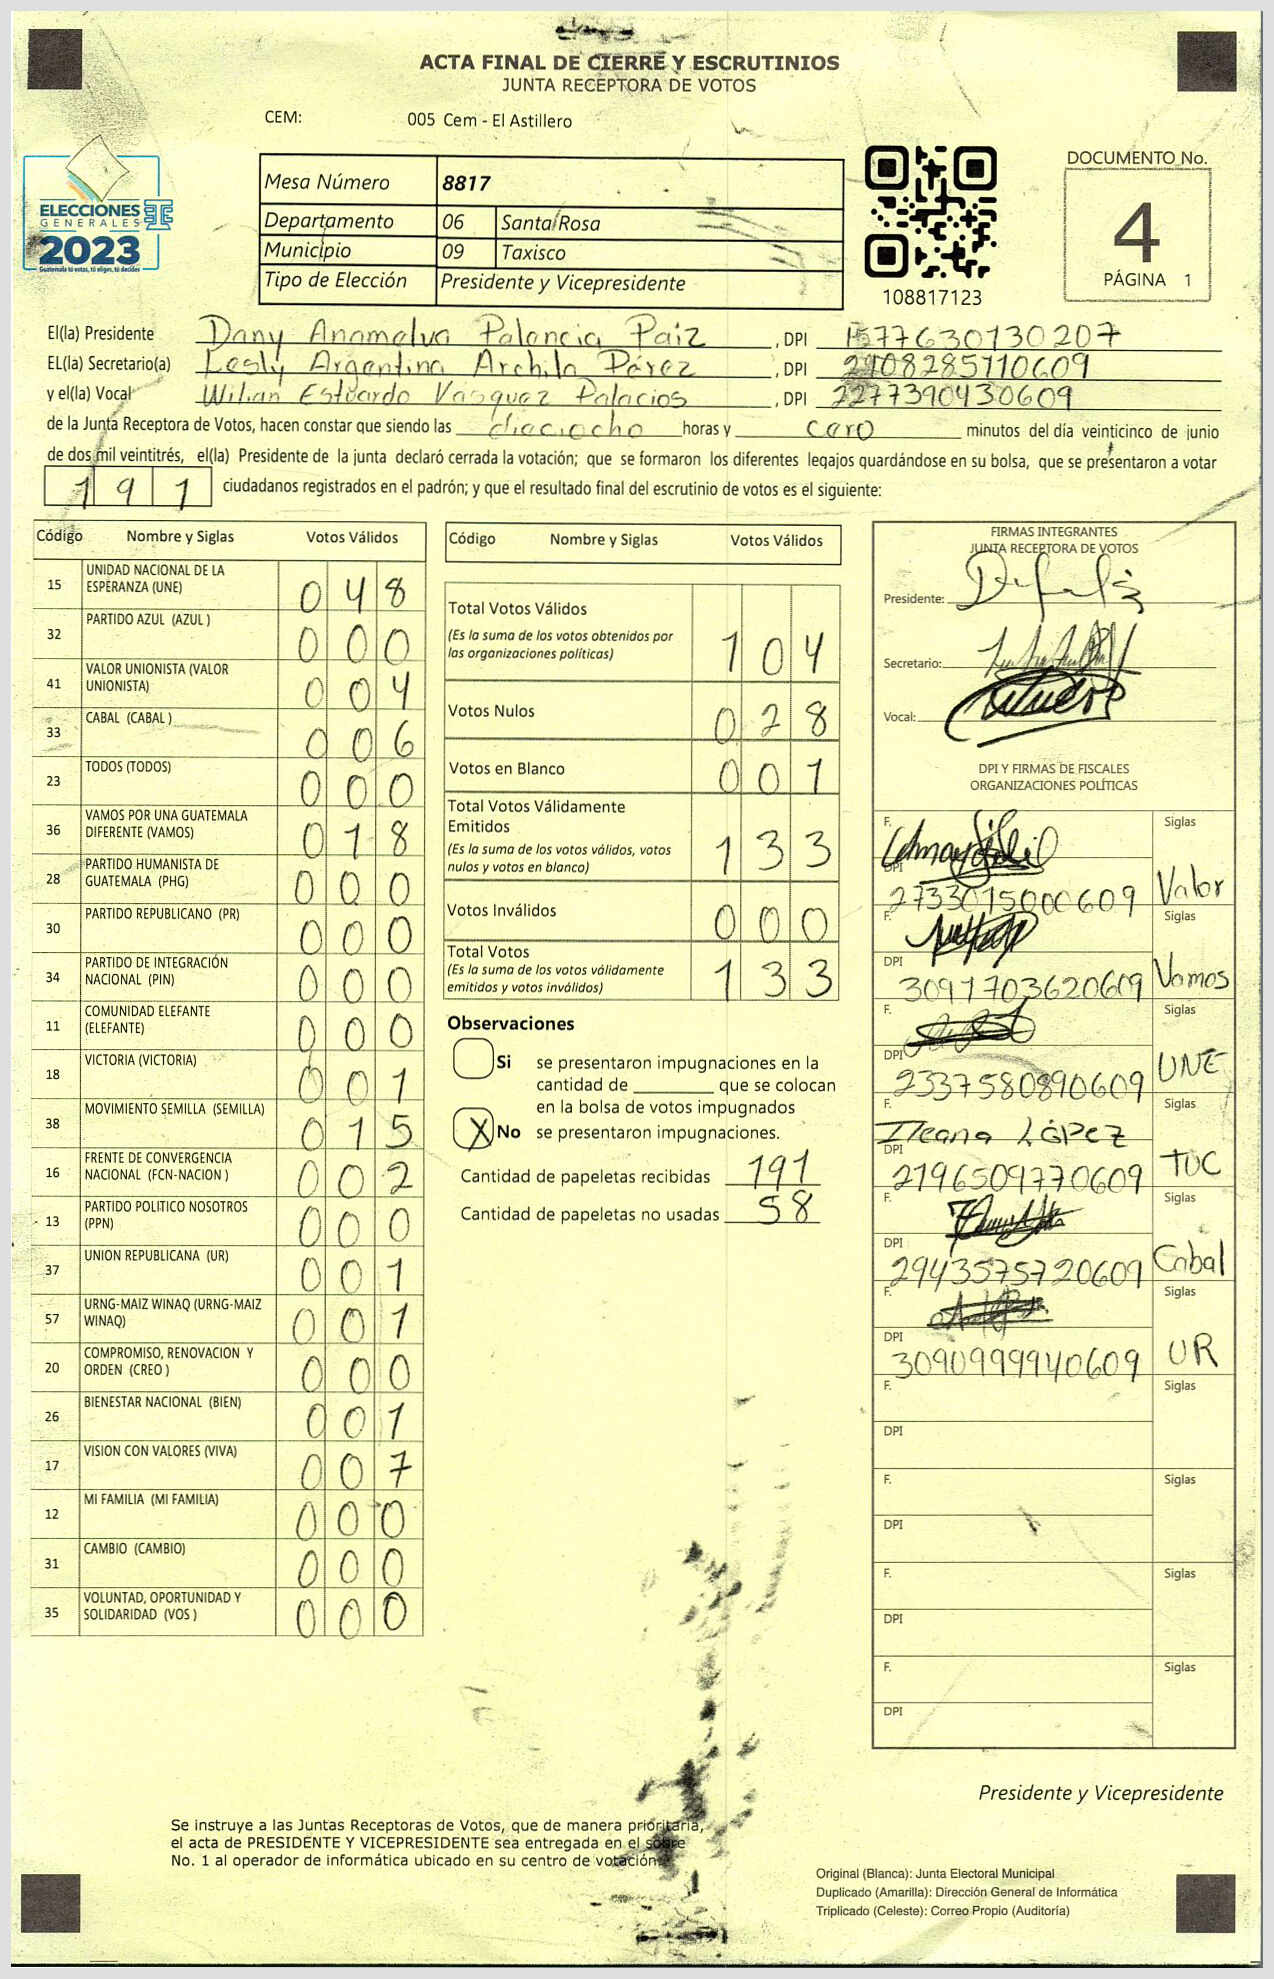 ACTA FINAL DE CIERRE Y ESCRUTINIOS
JUNTA RECEPTORA DE VOTOS
CEM: 005 Cem - El Astillero
ELECCIONES
GENERALES
2023
Guatemala tú votas, tú eliges, tú decides
Mesa Número 8817
Departamento 06 Santa Rosa
Municipio 09 Taxisco
Tipo de Elección Presidente y Vicepresidente
108817123
DOCUMENTO No.
4
PÁGINA 1
El(la) Presidente Dany Anamelva Palencia Paiz , DPI 1577630130207
EL(la) Secretario(a) Lesly Argentina Archila Pérez , DPI 2408285110609
y el(la) Vocal Wilian Estuardo Vasquez Palacios , DPI 2277390430609
de la Junta Receptora de Votos, hacen constar que siendo las dieciocho horas y cero minutos del día veinticinco de junio
de dos mil veintitrés, el(la) Presidente de la junta declaró cerrada la votación; que se formaron los diferentes legajos guardándose en su bolsa, que se presentaron a votar
191 ciudadanos registrados en el padrón; y que el resultado final del escrutinio de votos es el siguiente:
Código Nombre y Siglas Votos Válidos
15 UNIDAD NACIONAL DE LA
ESPERANZA (UNE) 048
32 PARTIDO AZUL (AZUL ) 000
41 VALOR UNIONISTA (VALOR
UNIONISTA) 004
33 CABAL (CABAL ) 006
23 TODOS (TODOS) 000
36 VAMOS POR UNA GUATEMALA
DIFERENTE (VAMOS) 018
28 PARTIDO HUMANISTA DE
GUATEMALA (PHG) 000
30 PARTIDO REPUBLICANO (PR) 000
34 PARTIDO DE INTEGRACIÓN
NACIONAL (PIN) 000
11 COMUNIDAD ELEFANTE
(ELEFANTE) 000
18 VICTORIA (VICTORIA) 001
38 MOVIMIENTO SEMILLA (SEMILLA) 015
16 FRENTE DE CONVERGENCIA
NACIONAL (FCN-NACION ) 002
13 PARTIDO POLITICO NOSOTROS
(PPN) 000
37 UNION REPUBLICANA (UR) 001
57 URNG-MAIZ WINAQ (URNG-MAIZ
WINAQ) 001
20 COMPROMISO, RENOVACION Y
ORDEN (CREO ) 000
26 BIENESTAR NACIONAL (BIEN) 001
17 VISION CON VALORES (VIVA) 007
12 MI FAMILIA (MI FAMILIA) 000
31 CAMBIO (CAMBIO) 000
35 VOLUNTAD, OPORTUNIDAD Y
SOLIDARIDAD (VOS ) 000
Código Nombre y Siglas Votos Válidos
Total Votos Válidos
(Es la suma de los votos obtenidos por
las organizaciones políticas) 104
Votos Nulos 028
Votos en Blanco 001
Total Votos Válidamente
Emitidos
(Es la suma de los votos válidos, votos
nulos y votos en blanco) 133
Votos Inválidos 000
Total Votos
(Es la suma de los votos válidamente
emitidos y votos inválidos) 133
Observaciones
Si se presentaron impugnaciones en la
cantidad de ________ que se colocan
en la bolsa de votos impugnados
X No se presentaron impugnaciones.
Cantidad de papeletas recibidas 191
Cantidad de papeletas no usadas 58
FIRMAS INTEGRANTES
JUNTA RECEPTORA DE VOTOS
Presidente:
Secretario:
Vocal:
DPI Y FIRMAS DE FISCALES
ORGANIZACIONES POLÍTICAS
F. Siglas
DPI 2733015000609 Valor
F. Siglas
DPI 3091703620609 Vamos
F. Siglas
DPI 2337580890609 UNE
F. Ileana López Siglas
DPI 2196509770609 TUC
F. Siglas
DPI 2943575720609 Cabal
F. Siglas
DPI 3090999940609 UR
F. Siglas
DPI
F. Siglas
DPI
F. Siglas
DPI
F. Siglas
DPI
Presidente y Vicepresidente
Se instruye a las Juntas Receptoras de Votos, que de manera prioritaria,
el acta de PRESIDENTE Y VICEPRESIDENTE sea entregada en el sobre
No. 1 al operador de informática ubicado en su centro de votación.
Original (Blanca): Junta Electoral Municipal
Duplicado (Amarilla): Dirección General de Informática
Triplicado (Celeste): Correo Propio (Auditoría)